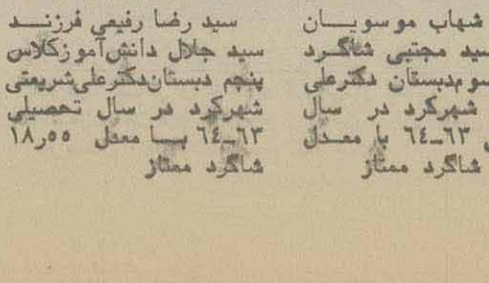 شهاب موسویـــان
سید مجتبی شاگـرد
سوم دبستان دکترعلی
شهرکرد در سال
۶۳ـ۶۴ با معـدل
شاگرد ممتاز
سید رضا رفیعی فرزنـــد
سید جلال دانش‌آموز کلاس
پنجم دبستان دکترعلی شریعتی
شهرکرد در سال تحصیلی
۶۳ـ۶۴ بـــا معدل ۱۸٫۵۵
شاگرد ممتاز